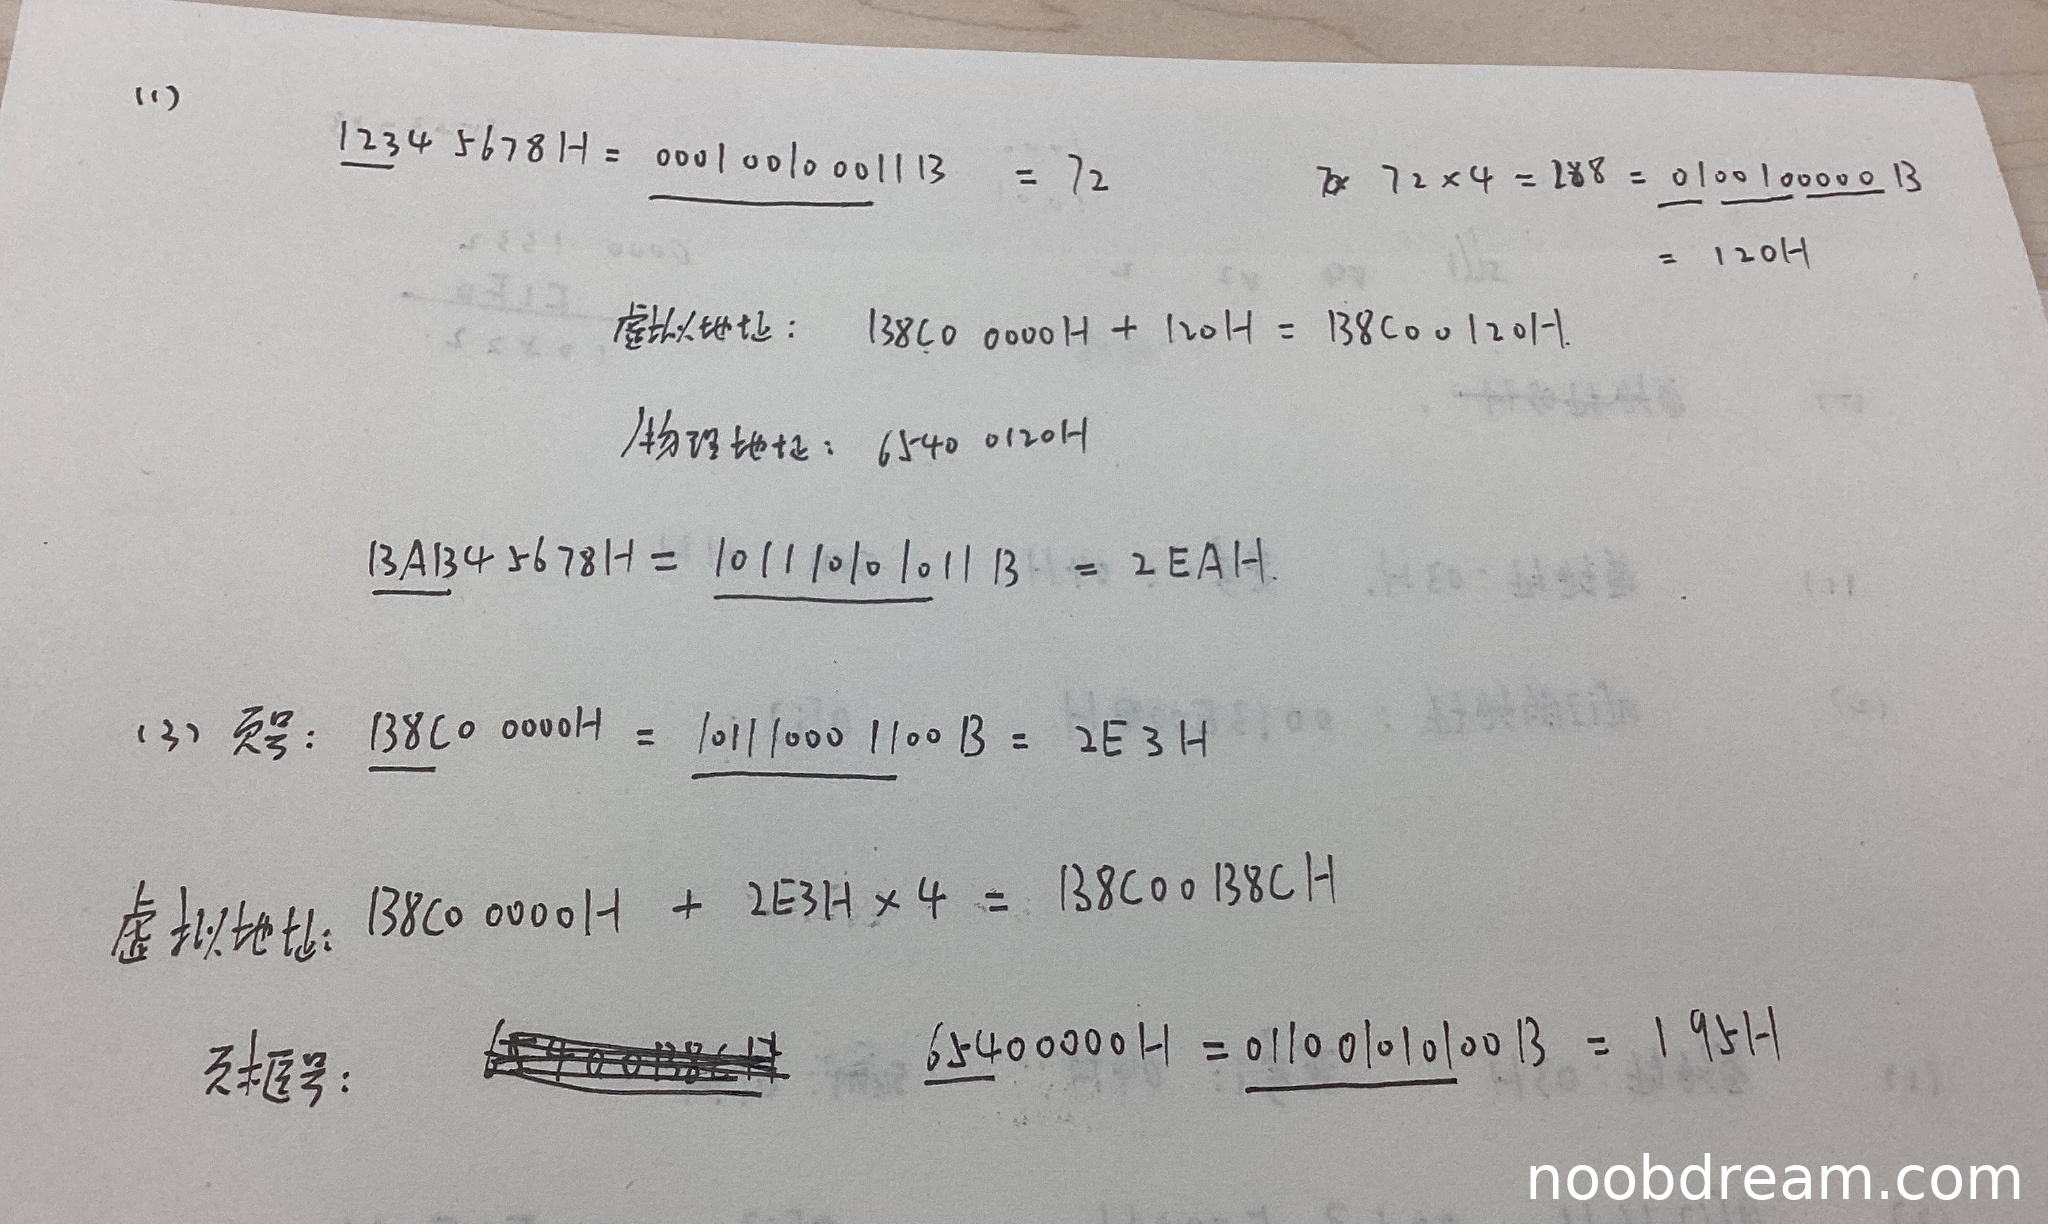 (1)
12345678H = 000100100011B = 72
72×4 = 288 = 0100100000B
= 120H
虚拟地址: B8C0 0000H + 120H = B8C00120H.
物理地址: 6540 0120H
BAB45678H = 101110101011B = 2EAH.
(3) 页号: B8C0 0000H = 101110001100B = 2E3H
虚拟地址: B8C0 0000H + 2E3H × 4 = B8C00B8CH
页框号: 65400000H = 011001010100B = 195H
noobdream.com